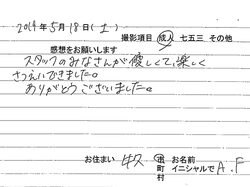 2014年5月18日(土)
撮影項目 成人 七五三 その他
感想をお願いします
スタッフのみなさんが優しくて、楽しく
さつえいできました。
ありがとうございました。
お住まい 牛久 市町村 お名前 イニシャルで A.F